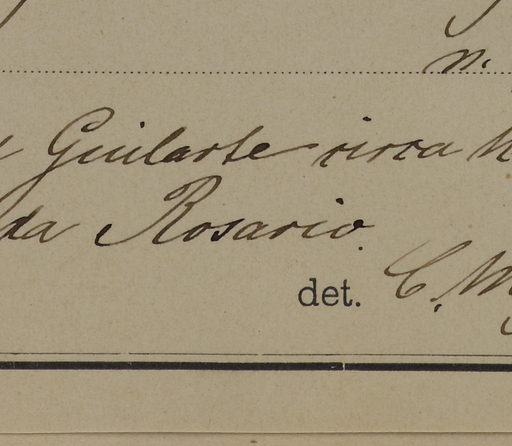 n.
Guilarte circa
da Rosario.
det. C.